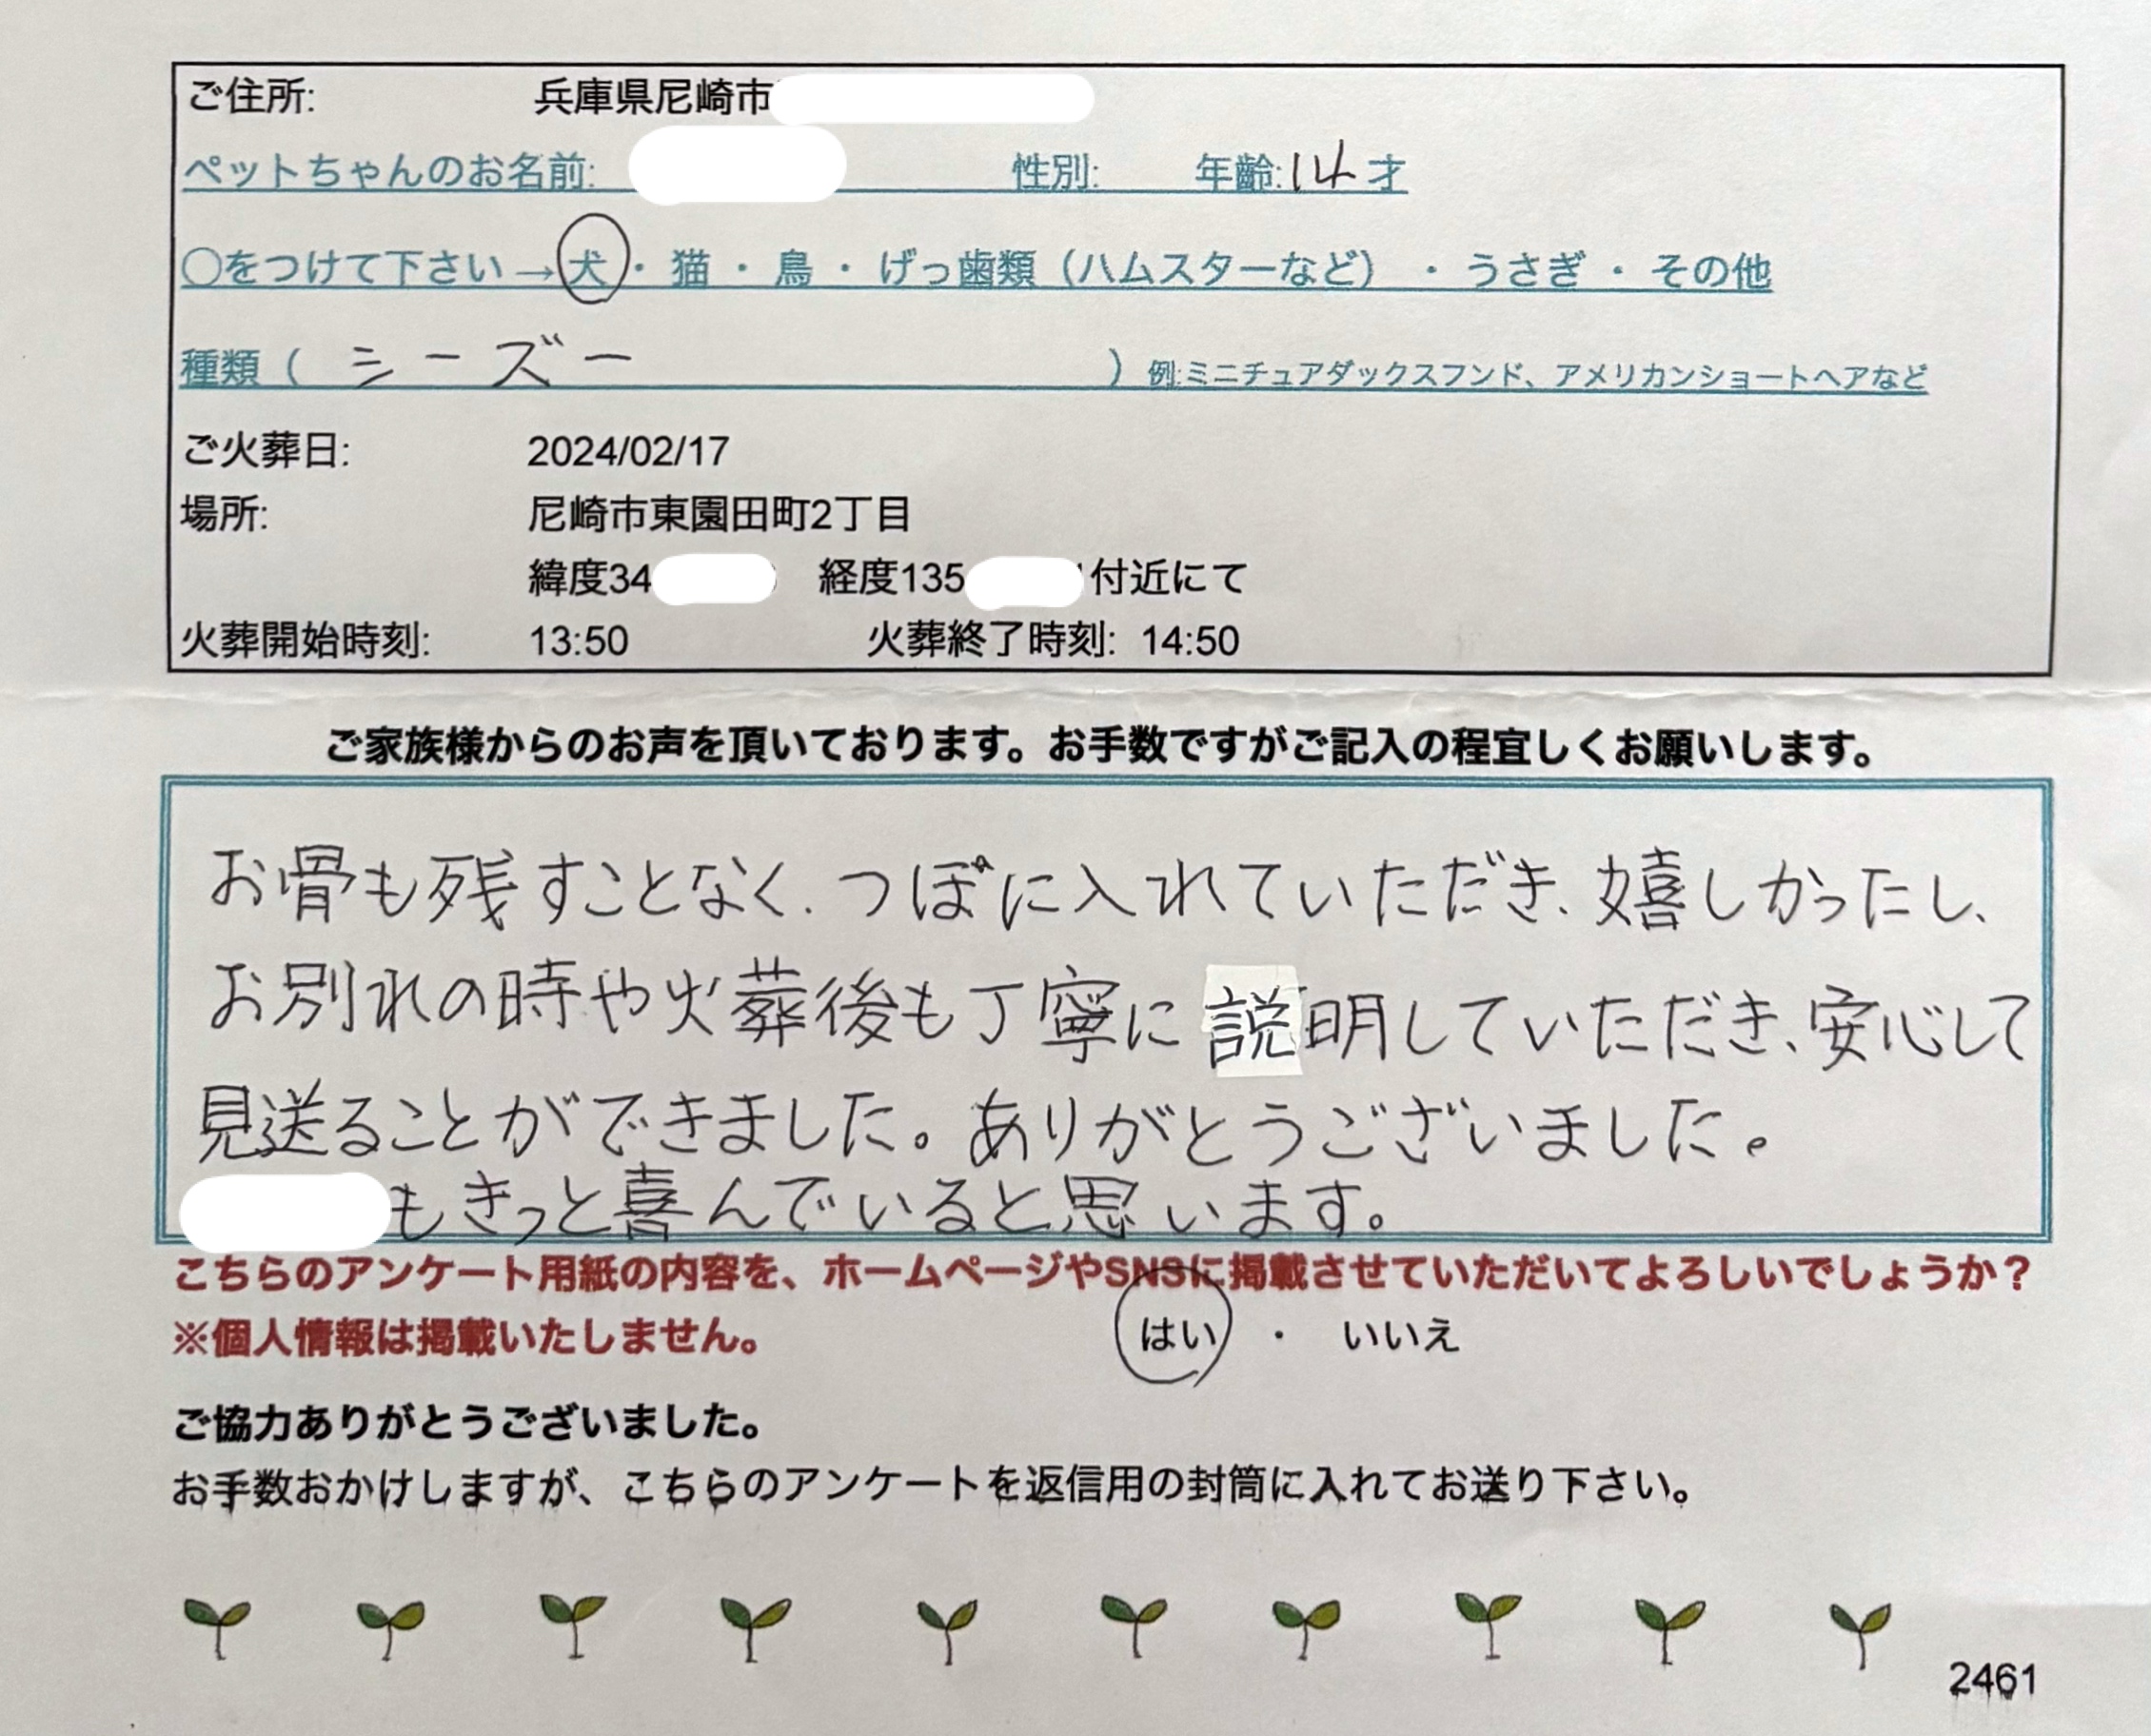 ご住所: 兵庫県尼崎市
ペットちゃんのお名前: 性別: 年齢:14才
○をつけて下さい→犬・猫・鳥・げっ歯類（ハムスターなど）・うさぎ・その他
種類（シーズー）例:ミニチュアダックスフンド、アメリカンショートヘアなど
ご火葬日: 2024/02/17
場所: 尼崎市東園田町2丁目
緯度34 経度135 付近にて
火葬開始時刻: 13:50 火葬終了時刻: 14:50
ご家族様からのお声を頂いております。お手数ですがご記入の程宜しくお願いします。
お骨も残すことなく、つぼに入れていただき、嬉しかったし、
お別れの時や火葬後も丁寧に説明していただき、安心して
見送ることができました。ありがとうございました。
もきっと喜んでいると思います。
こちらのアンケート用紙の内容を、ホームページやSNSに掲載させていただいてよろしいでしょうか？
※個人情報は掲載いたしません。 はい ・ いいえ
ご協力ありがとうございました。
お手数おかけしますが、こちらのアンケートを返信用の封筒に入れてお送り下さい。
2461